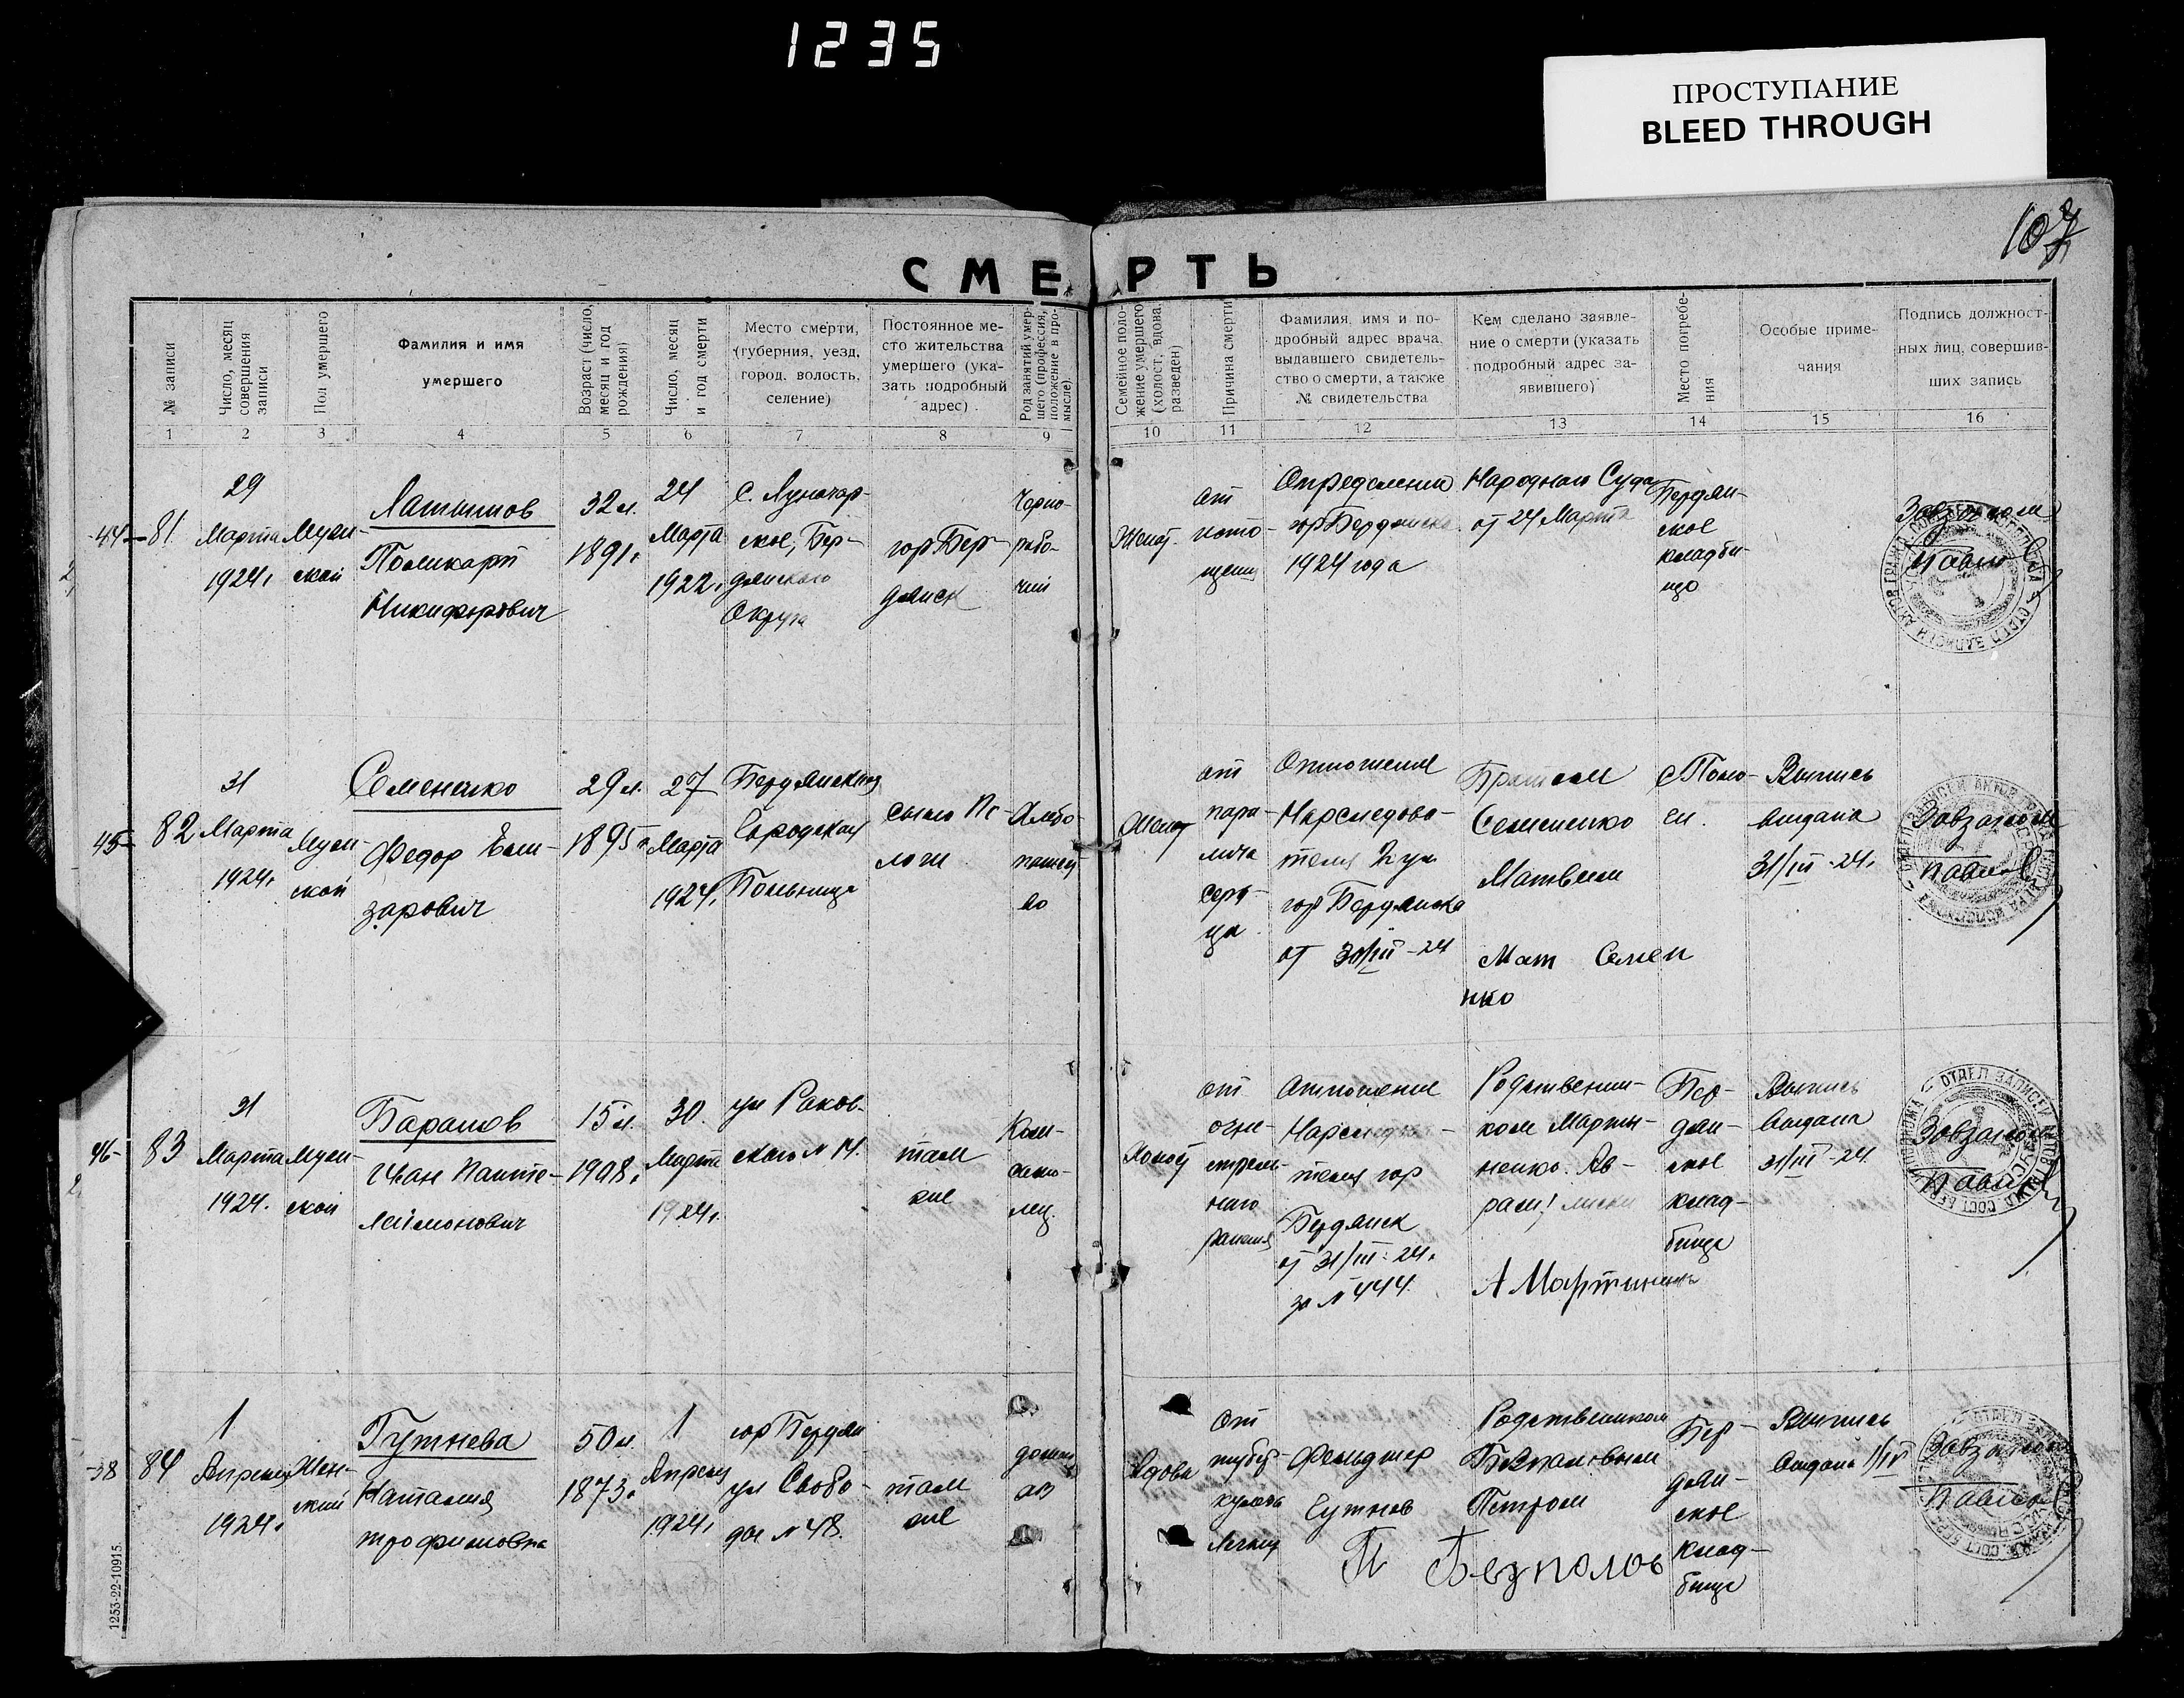 1235
ПРОСТУПАНИЕ
BLEED THROUGH
107
СМЕРТЬ
№ записи
Число, месяц совершения записи
Пол умершего
Фамилия и имя
умершего
Возраст (число, месяц и год рождения)
Число, месяц и год смерти
Место смерти,
(губерния, уезд,
город, волость,
селение)
Постоянное ме-
сто жительства
умершего (ука-
зать подробный
адрес)
Род занятий умер-
шего (профессия,
положение в про-
мысле).
Семейное поло-
жение умершего
(холост, вдова,
разведен)
Причина смерти
Фамилия, имя и по-
дробный адрес врача,
выдавшего свидетель-
ство о смерти, а также
№ свидетельства
Кем сделано заявле-
ние о смерти (указать
подробный адрес за-
явившего)
Место погребе-
ния
Особые приме-
чания
Подпись должност-
ных лиц, совершив-
ших запись
1 2 3 4 5 6 7 8 9 10 11 12 13 14 15 16
44 81
29
Марта
1924г
Муж-
ской
Латышов
Поликарп
Никифорович
32 л.
1891г
24
Марта
1922г
с. Луначар-
ское, Бер-
дянского
Округа
гор Бер-
дянск
Черно-
рабо-
чий
Женат
от
исто-
щения
Определения
гор Бердянска
1924 года
Народного Суда
от 24 Марта
Бердян-
ское
кладби-
ще
Завзагсом
45 82
31
Марта
1924г
Муж-
ской
Семенко
Федор Ели-
зарович
29 л.
1895г
27
Марта
1924г
Бердянская
Городская
Больница
село Но-
логи
Хлебо-
пашест-
во
Женат
от
пара-
лича
серд-
ца
Отношение
Нарследова-
теля 2 уч
гор Бердянска
от 30/III-24
Братом
Семененко
Матвеем
Мат Семен
нко
Выпись
выдана
31/III-24г
Завзагсом
46- 83
31
Марта
1924г.
Муж-
ской
Барашов
Иван Панте-
лаймонович
15 л.
1908г
30
Марта
1924г.
ул Раков-
ского № 14.
там
же
Ком-
сомо-
лец
Холост
от
огне-
стрель-
ного
ранения
Отношение
Нарследова-
теля гор
Бердянск
от 31/III-24г
за № 444.
Родственни-
ком Марты-
ненко Ав-
рам
А Мартыненко
Бер-
дян-
ское
клад-
бище
Выпись
выдана
31/III-24
Завзагсом
38 84
1
Апреля
1924г
Жен-
ский
Гутнева
Наталия
трофимовна
50 л.
1873г
1
Апреля
1924г
гор Бердян
ул Свобо-
ды № 48.
там
же
Вдова
От
тубер
кулеза
легких
Фельдшер
Гутнов
Родственником
Безпаловым
Петром
П Безполов
Бер-
дян-
ское
Клад-
бище
Выпись
выдана 1/IV
Завзагсом
1253-22-10915.